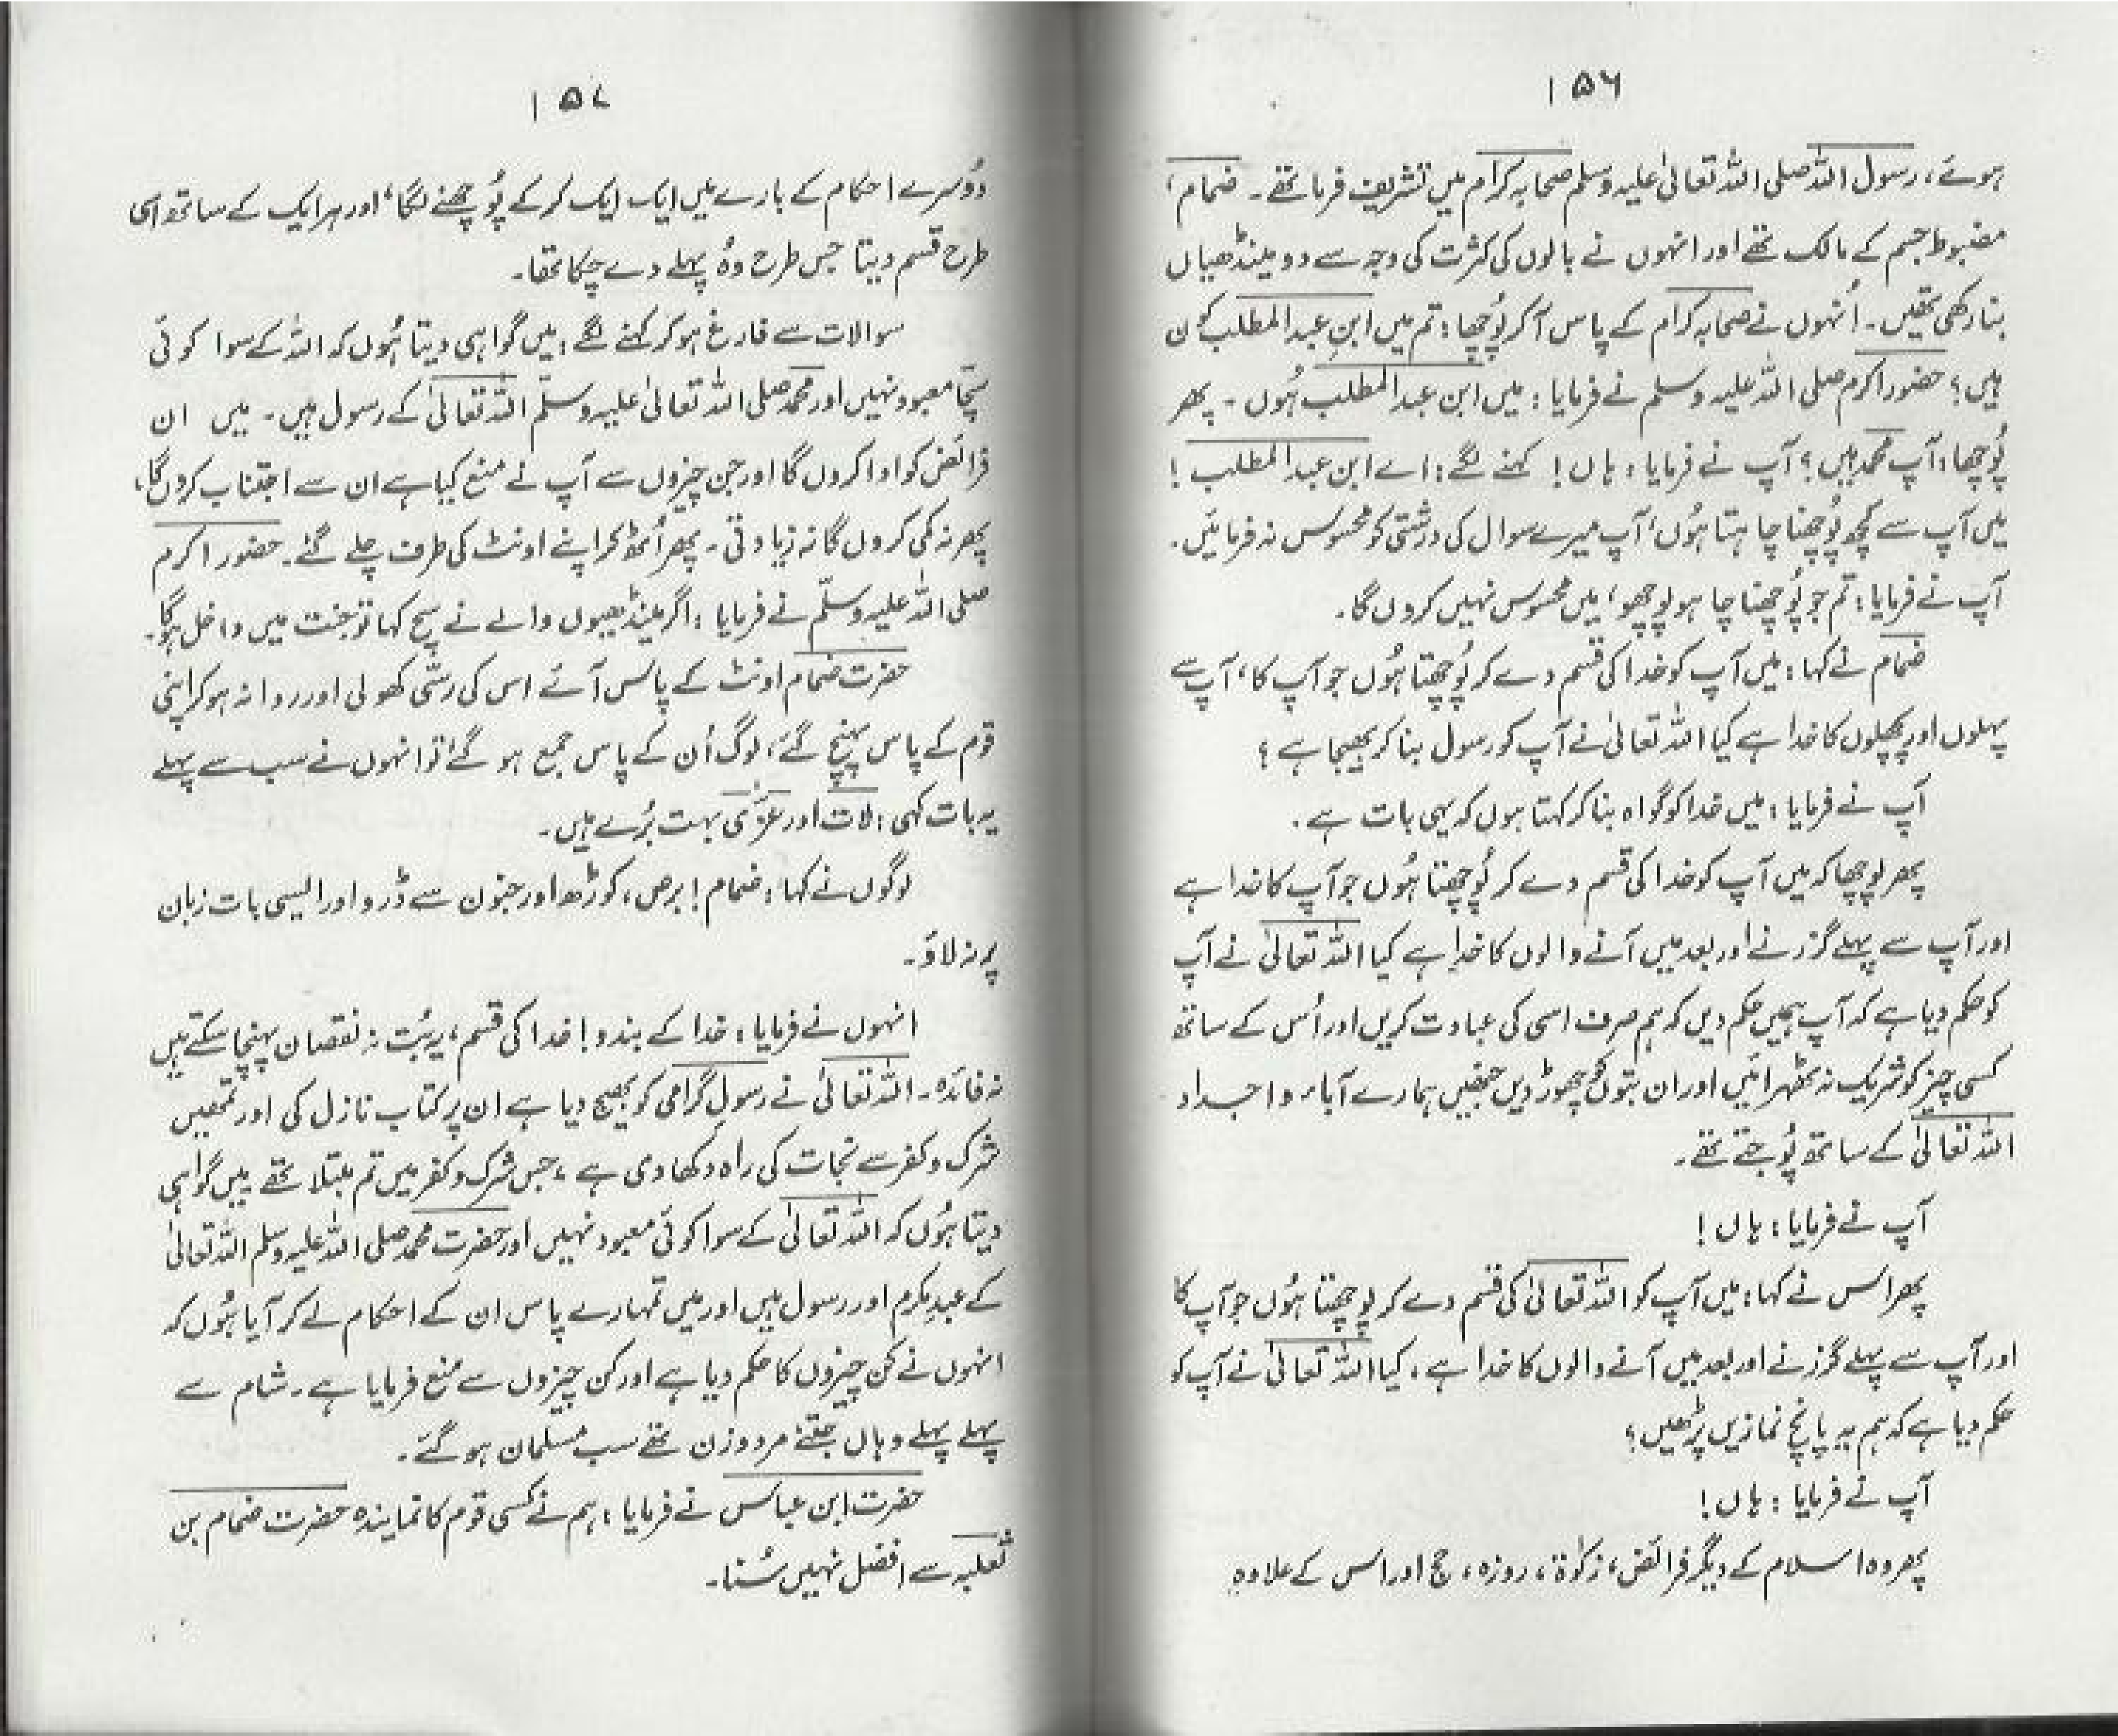 ۱۵۶
ہوئے، رسول اللہ صلی اللہ تعالیٰ علیہ وسلم صحابہ کرام میں تشریف فرما تھے۔ ضمام،
مضبوط جسم کے مالک تھے اور انہوں نے بالوں کی کثرت کی وجہ سے دو مینڈھیاں
بنا رکھی تھیں۔ اُنہوں نے صحابہ کرام کے پاس آ کر پُوچھا: تم میں ابنِ عبد المطلب کون
ہیں؟ حضور اکرم صلی اللہ علیہ وسلم نے فرمایا: میں ابن عبد المطلب ہُوں۔ پھر
پُوچھا: آپ محمد ہیں؟ آپ نے فرمایا: ہاں! کہنے لگے: اے ابن عبد المطلب!
میں آپ سے کچھ پُوچھنا چاہتا ہُوں، آپ میرے سوال کی درشتی کو محسوس نہ فرمائیں۔
آپ نے فرمایا: تم جو پُوچھنا چاہو پوچھو، میں محسوس نہیں کروں گا۔
ضمام نے کہا: میں آپ کو خدا کی قسم دے کر پُوچھتا ہُوں جو آپ کا، آپ سے
پہلوں اور پچھلوں کا خدا ہے کیا اللہ تعالیٰ نے آپ کو رسول بنا کر بھیجا ہے؟
آپ نے فرمایا: میں خدا کو گواہ بنا کر کہتا ہوں کہ یہی بات ہے۔
پھر پوچھا کہ میں آپ کو خدا کی قسم دے کر پُوچھتا ہُوں جو آپ کا خدا ہے
اور آپ سے پہلے گزرنے اور بعد میں آنے والوں کا خدا ہے کیا اللہ تعالیٰ نے آپ
کو حکم دیا ہے کہ آپ ہمیں حکم دیں کہ ہم صرف اسی کی عبادت کریں اور اُس کے ساتھ
کسی چیز کو شریک نہ ٹھہرائیں اور ان بتوں کو چھوڑ دیں جنھیں ہمارے آباء و اجداد
اللہ تعالیٰ کے ساتھ پُوجتے تھے۔
آپ نے فرمایا: ہاں!
پھر اس نے کہا: میں آپ کو اللہ تعالیٰ کی قسم دے کر پوچھتا ہُوں جو آپ کا
اور آپ سے پہلے گزرنے اور بعد میں آنے والوں کا خدا ہے، کیا اللہ تعالیٰ نے آپ کو
حکم دیا ہے کہ ہم یہ پانچ نمازیں پڑھیں؟
آپ نے فرمایا: ہاں!
پھر وہ اسلام کے دیگر فرائض، زکوٰۃ، روزہ، حج اور اس کے علاوہ
۱۵۷
دُوسرے احکام کے بارے میں ایک ایک کر کے پُوچھنے لگا، اور ہر ایک کے ساتھ اسی
طرح قسم دیتا جس طرح وُہ پہلے دے چکا تھا۔
سوالات سے فارغ ہو کر کہنے لگے: میں گواہی دیتا ہُوں کہ اللہ کے سوا کوئی
سچّا معبود نہیں اور محمد صلی اللہ تعالیٰ علیہ وسلّم اللہ تعالیٰ کے رسول ہیں۔ میں ان
فرائض کو ادا کروں گا اور جن چیزوں سے آپ نے منع کیا ہے ان سے اجتناب کروں گا،
پھر نہ کمی کروں گا نہ زیادتی۔ پھر اُٹھ کر اپنے اونٹ کی طرف چلے گئے۔ حضور اکرم
صلی اللہ علیہ وسلّم نے فرمایا: اگر مینڈھیوں والے نے سچ کہا تو جنت میں داخل ہوگا۔
حضرت ضمام اونٹ کے پاس آئے اس کی رسّی کھولی اور روانہ ہو کر اپنی
قوم کے پاس پہنچ گئے، لوگ اُن کے پاس جمع ہو گئے تو انہوں نے سب سے پہلے
یہ بات کہی: لات اور عزّیٰ بہت بُرے ہیں۔
لوگوں نے کہا: ضمام! برص، کوڑھ اور جنون سے ڈرو اور ایسی بات زبان
پر نہ لاؤ۔
انہوں نے فرمایا: خدا کے بندو! خدا کی قسم، یہ بُت نہ نقصان پہنچا سکتے ہیں
نہ فائدہ۔ اللہ تعالیٰ نے رسولِ گرامی کو بھیج دیا ہے ان پر کتاب نازل کی اور تمھیں
شرک و کفر سے نجات کی راہ دکھا دی ہے، جس شرک و کفر میں تم مبتلا تھے۔ میں گواہی
دیتا ہُوں کہ اللہ تعالیٰ کے سوا کوئی معبود نہیں اور حضرت محمد صلی اللہ علیہ وسلم اللہ تعالیٰ
کے عبدِ مکرم اور رسول ہیں اور میں تمہارے پاس ان کے احکام لے کر آیا ہُوں کہ
انہوں نے کن چیزوں کا حکم دیا ہے اور کن چیزوں سے منع فرمایا ہے۔ شام سے
پہلے پہلے وہاں جتنے مرد و زن تھے سب مسلمان ہو گئے۔
حضرت ابن عباس نے فرمایا: ہم نے کسی قوم کا نمایندہ حضرت ضمام بن
ثعلبہ سے افضل نہیں سُنا۔